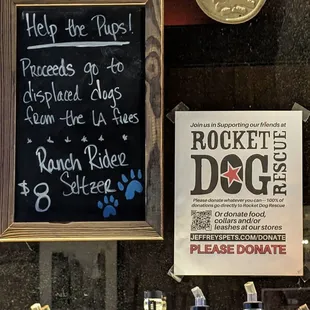 Help the Pups!
Proceeds go to
displaced dogs
from the LA fires
Ranch Rider
Seltzer
$8
Join us in Supporting our friends at
ROCKET
DOG
RESCUE
Please donate whatever you can – 100% of
donations go directly to Rocket Dog Rescue
Or donate food,
collars and/or
leashes at our stores
JEFFREYSPETS.COM/DONATE
PLEASE DONATE